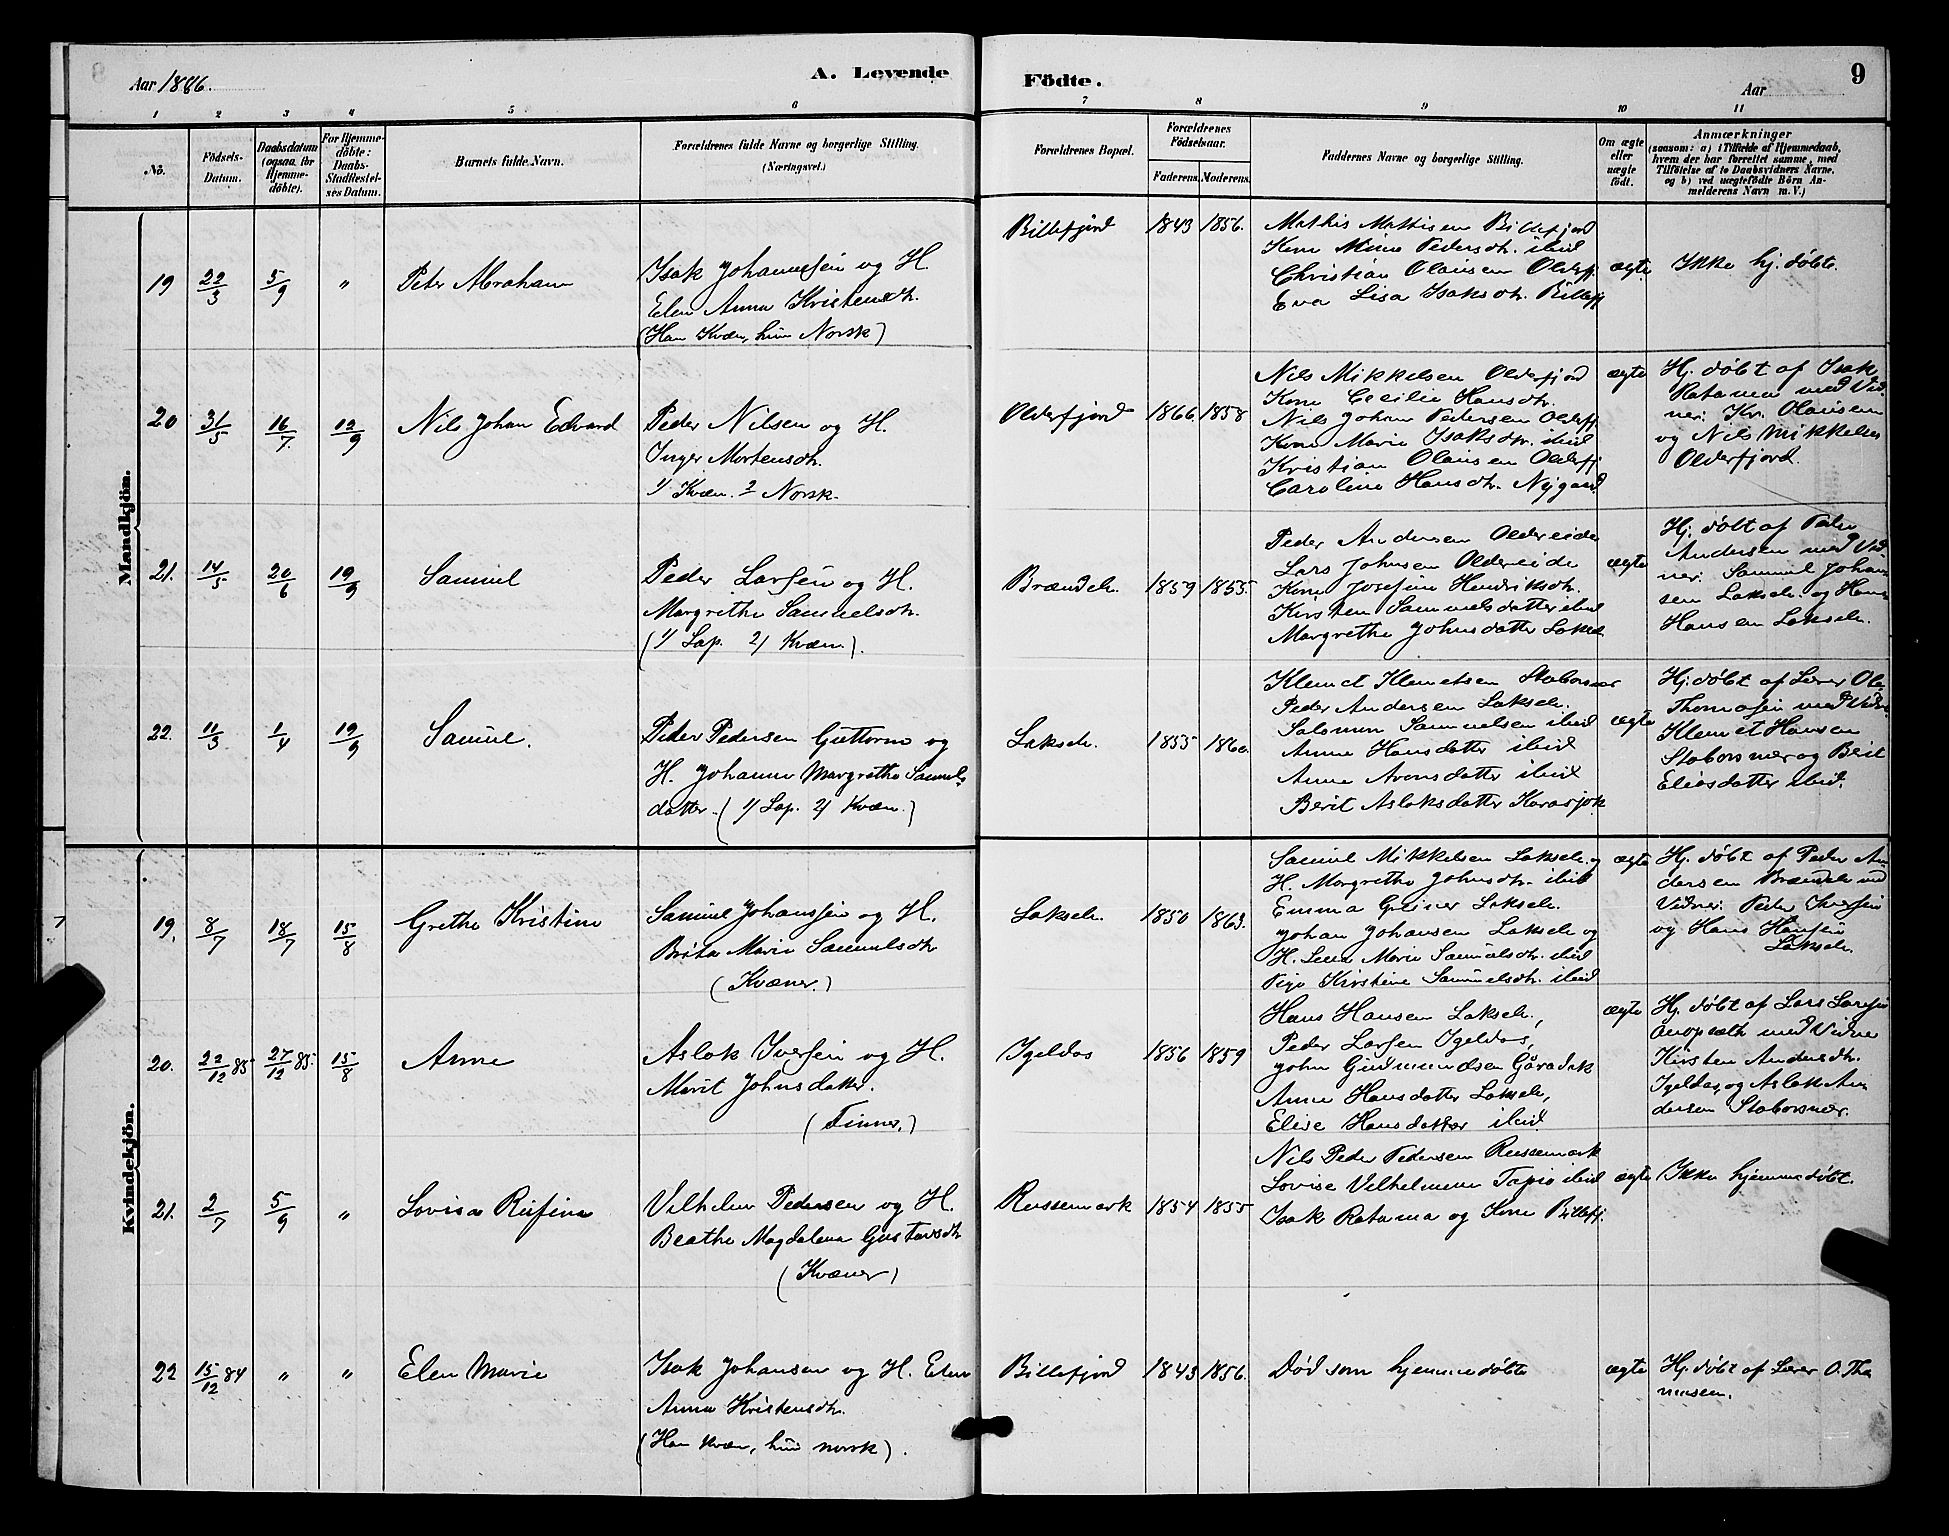 Aar 1886.
A. Levende
Födte.
Aar
9
1 2 3 4 5 6 7 8 9 10 11
No.
Födsels-
Datum.
Daabsdatum
(ogsaa for
Hjemme-
döbte).
For Hjemme-
döbte:
Daabs-
Stadfæstel-
ses Datum.
Barnets fulde Navn.
Forældrenes fulde Navne og borgerlige Stilling.
(Næringsvei.)
Forældrenes Bopæl.
Forældrenes
Födselsaar.
Faderens. Moderens.
Faddernes Navne og borgerlige Stilling.
Om ægte
eller
uægte
födt.
Anmærkninger
(saasom: a) i Tilfælde af Hjemmedaab,
hvem der har forrettet samme, med
Tilföielse af to Daabsvidners Navne,
og b) ved uægtefödte Börn An-
melderens Navn m. V.)
Mandkjön.
19 22/3 5/9 "
Peter Abraham
Isak Johannesen og H.
Elen Anna Kristensdtr.
(Han Kvæn, hun Norsk)
Billefjord 1843 1856.
Mathis Mathisen Billefjord
Kone Mina Pedersdtr. ibid
Christian Olausen Olderfj.
Eva Lisa Isaksdtr. Billefj
ægte
Ikke hj. döbt.
20 31/5 16/7. 12/9
Nils Johan Edvard
Peder Nilsen og H.
Inger Mortensdtr.
1/ Kvæn. 2 Norsk.
Olderfjord 1866. 1858
Nils Mikkelsen Olderfjord
Kone Cecilie Hansdtr.
Nils Johan Pedersen Olderfj.
Kone Marie Isaksdtr. ibid
Kristian Olausen Olderfj
Caroline Hansdtr. Nygaard
ægte
Hj. döbt af Isak
Ratama med Vid-
ner: Kr. Olausen
og Nils Mikkelsen
Olderfjord.
21. 14/5 20/6 19/9
Samuel
Peder Larsen og H.
Margrethe Samuelsdtr.
(1/ Lap. 2/ Kvæn.)
Brændelv. 1859 1855.
Peder Andersen Oldereide
Lars Johnsen Oldereide
Kone Josefine Hendriksdtr.
Kirsten Samuelsdatter ibid
Margrethe Johnsdatter Lakselv
ægte
Hj. döbt af Peder
Andersen med Vid-
ner: Samuel Johan-
sen Lakselv. og Hans
Hansen Lakselv.
22. 11/3 1/4 19/9
Samuel.
Peder Pedersen Guttorm og
H. Johanne Margrethe Samuels
datter. (1/ Lap. 2/ Kvæn.)
Lakselv. 1855 1860.
Klemet Klemetsen Staborsnær
Peder Andersen Lakselv.
Salomon Samuelsen ibid
Anne Hansdatter ibid
Anne Aronsdatter ibid
Berit Aslaksdatter Karasjok
ægte
Hj. döbt af Lærer Ole
Thomasen med Vidn.
Klemet Hansen
Staborsnær og Berit
Eliasdatter ibid.
Kvindekjön.
19. 8/7 18/7 15/8
Grethe Kristine
Samuel Johanssen og H.
Brita Marie Samuelsdtr
(Kvæner.)
Lakselv. 1850 1863.
Samuel Mikkelsen Lakselv. og
H. Margrethe Johnsdtr. ibid
Emma Greiner Lakselv.
Johan Johansen Lakselv og
H. Lena Marie Samuelsdtr. ibid
Pige Kirstine Samuelsdtr. ibid
ægte
Hj. döbt af Peder An-
dersen Brændelv med
Vidner: Peder Iversen
og Hans Hansen
Lakselv.
20. 22/12 85 27/12 85. 15/8
Anne
Aslak Iversen og H.
Marit Johnsdatter.
(Finner.)
Igeldas 1856 1859
Hans Hansen Lakselv.,
Peder Larsen Igeldas,
John Gudmundsen Gåradak
Anne Hansdatter Lakselv,
Elise Hansdatter ibid
ægte
Hj. döbt af Lars Larsen
med Vidner
Kirsten Andersdtr.
Igeldas, og Aslak An
dersen Staborsnær.
21. 2/7 5/9 "
Lovisa Rufina
Vilhelm Pedersen og H.
Beathe Magdalena Gustavsdtr
(Kvæner)
Russemark 1854 1855
Nils Peder Pedersen Russemark
Lovise Velhelmine Tapio ibid
Isak Ratama og Kone Billefj.
ægte
Ikke hjemmedöbt.
22 15/12 84 " "
Elen Marie
Isak Johansen og H. Elen
Anna Kristensdtr.
(Han Kvæn, hun norsk).
Billefjord 1843 1856.
Död som hjemmedöbt
ægte
Hj. döbt af Lærer O. Tho
masen.
7